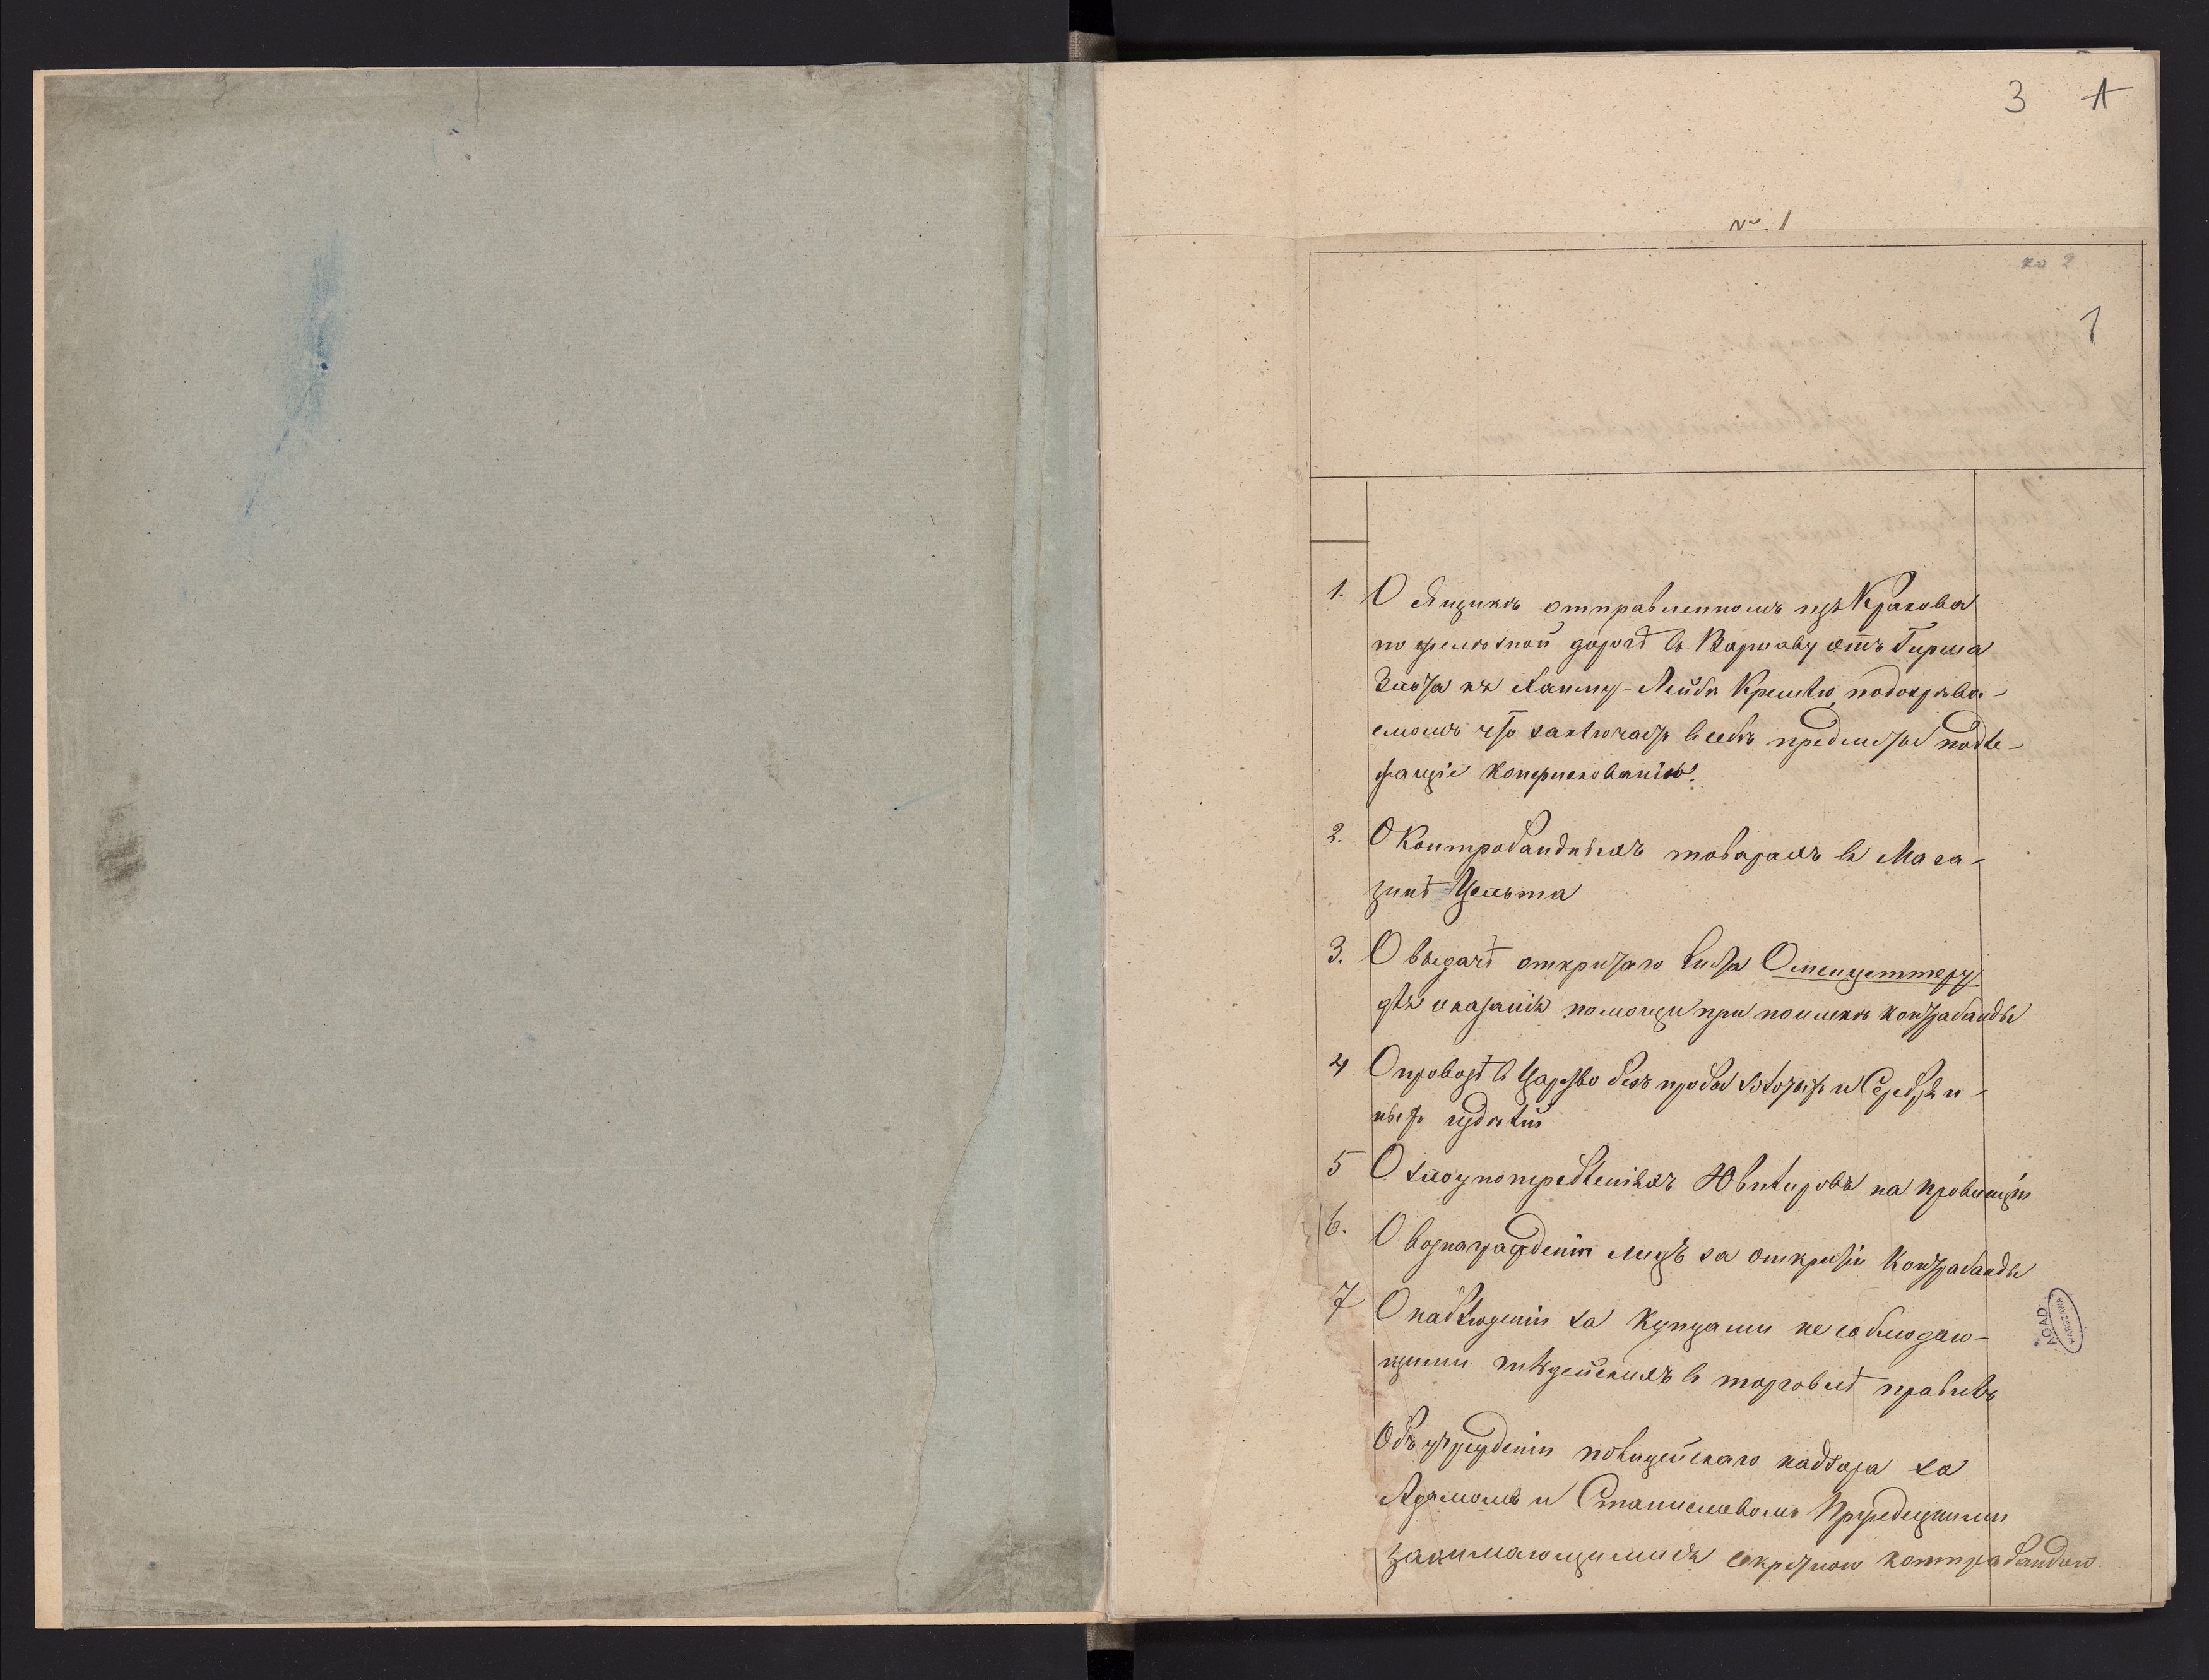 3 1
№ 1
ко 2
1
1. О Ящикѣ отправленномъ изъ Кракова
по желѣзной дорогѣ въ Варшаву отъ Гирша
къ Хаиму-Лейбѣ подозрѣва-
емомъ что заключаетъ въ себѣ предметы подле-
жащіе конфискованію.
2. О Контробандныхъ товарахъ въ Мага-
зинѣ Цельта
3. О выдачѣ открытаго листа Оппенцеттеру
для оказанія помощи при поимкѣ контрабанды
4 О провозѣ въ Царство безъ пробы золотыхъ и Серебрян-
ныхъ издѣлій
5 О злоупотребленіяхъ Ювилировъ на провинціи
6. О вознагражденіи лицъ за открытіе Контрабанды
7 О наблюденіи за купцами не соблюдаю-
щими въ торговлѣ правилъ
Объ учрежденіи полицейскаго надзора за
Адамомъ и Станиславомъ
занимающимися секретною контрабандою.
AGAD
WARSZAWA